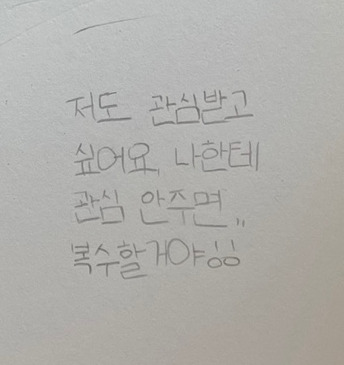 저도 관심받고
싶어요. 나한테
관심 안주면,,
복수할거야!!